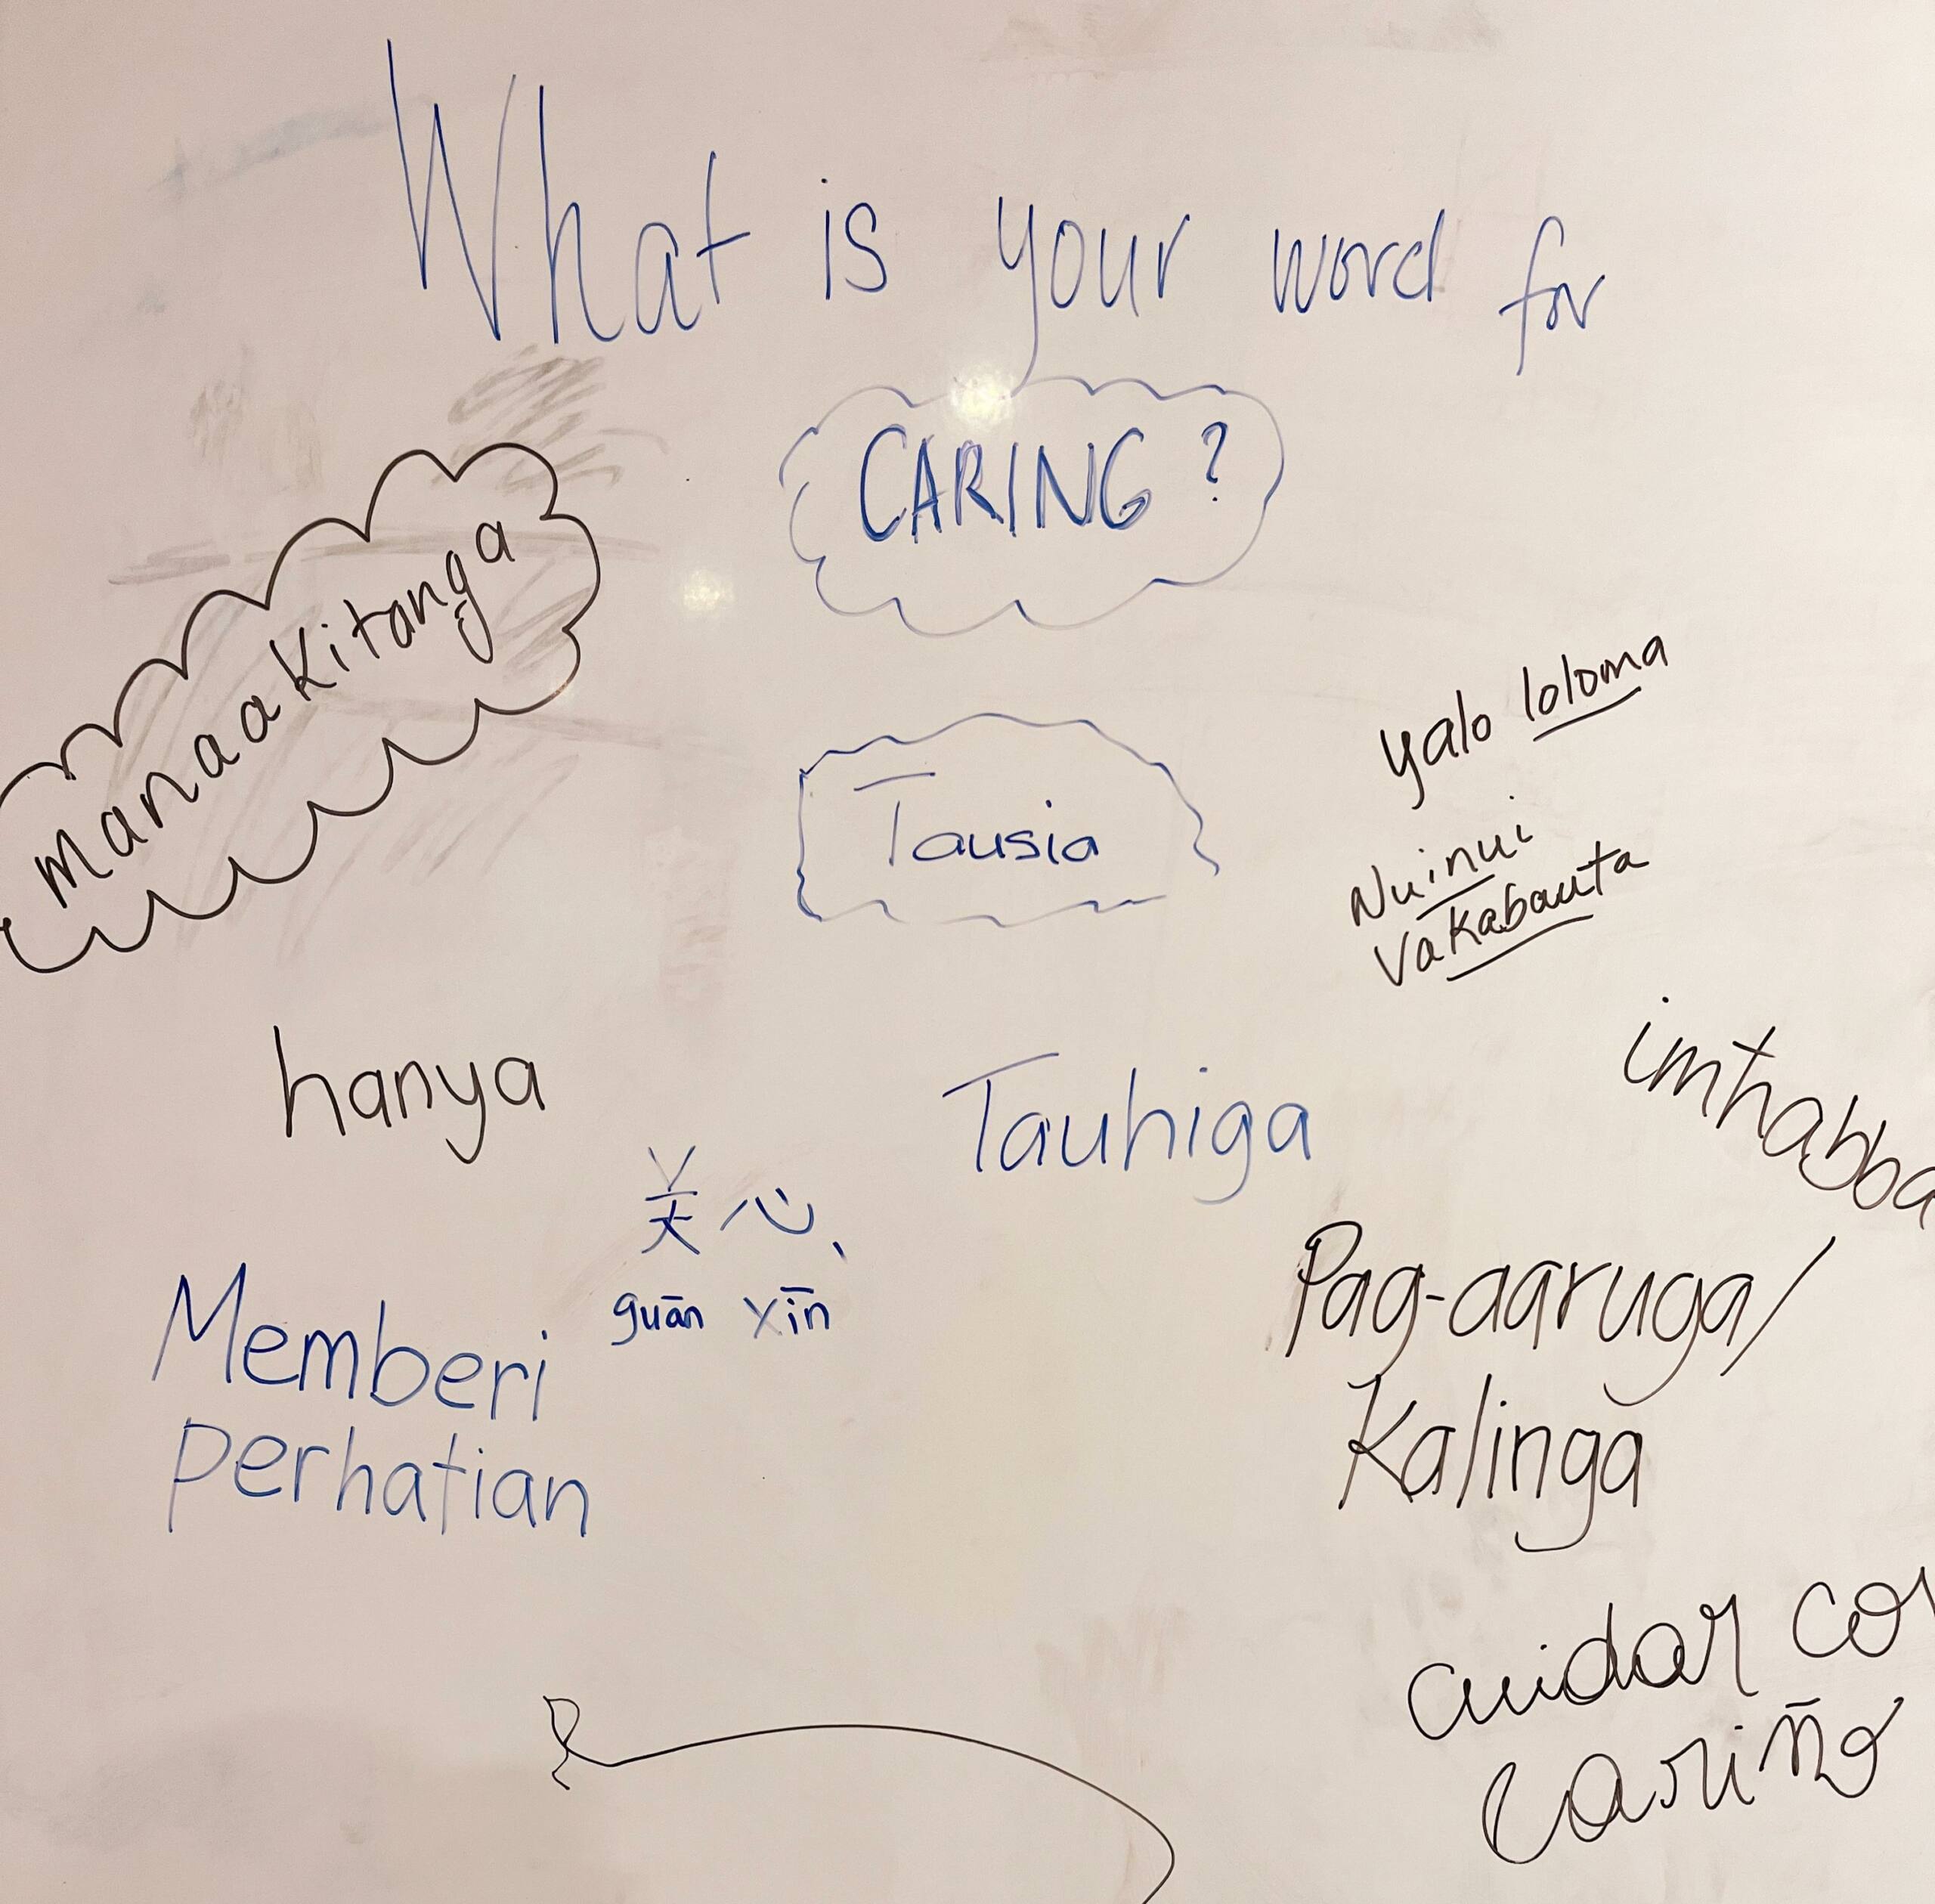 What is your word for
CARING?
manaakitanga
yalo loloma
Tausia
Nuinui
Vakabauta
hanya
imħabba
Tauhiga
关心、
guān xīn
Pag-aaruga/
Kalinga
Memberi
perhatian
cuidar con
cariño